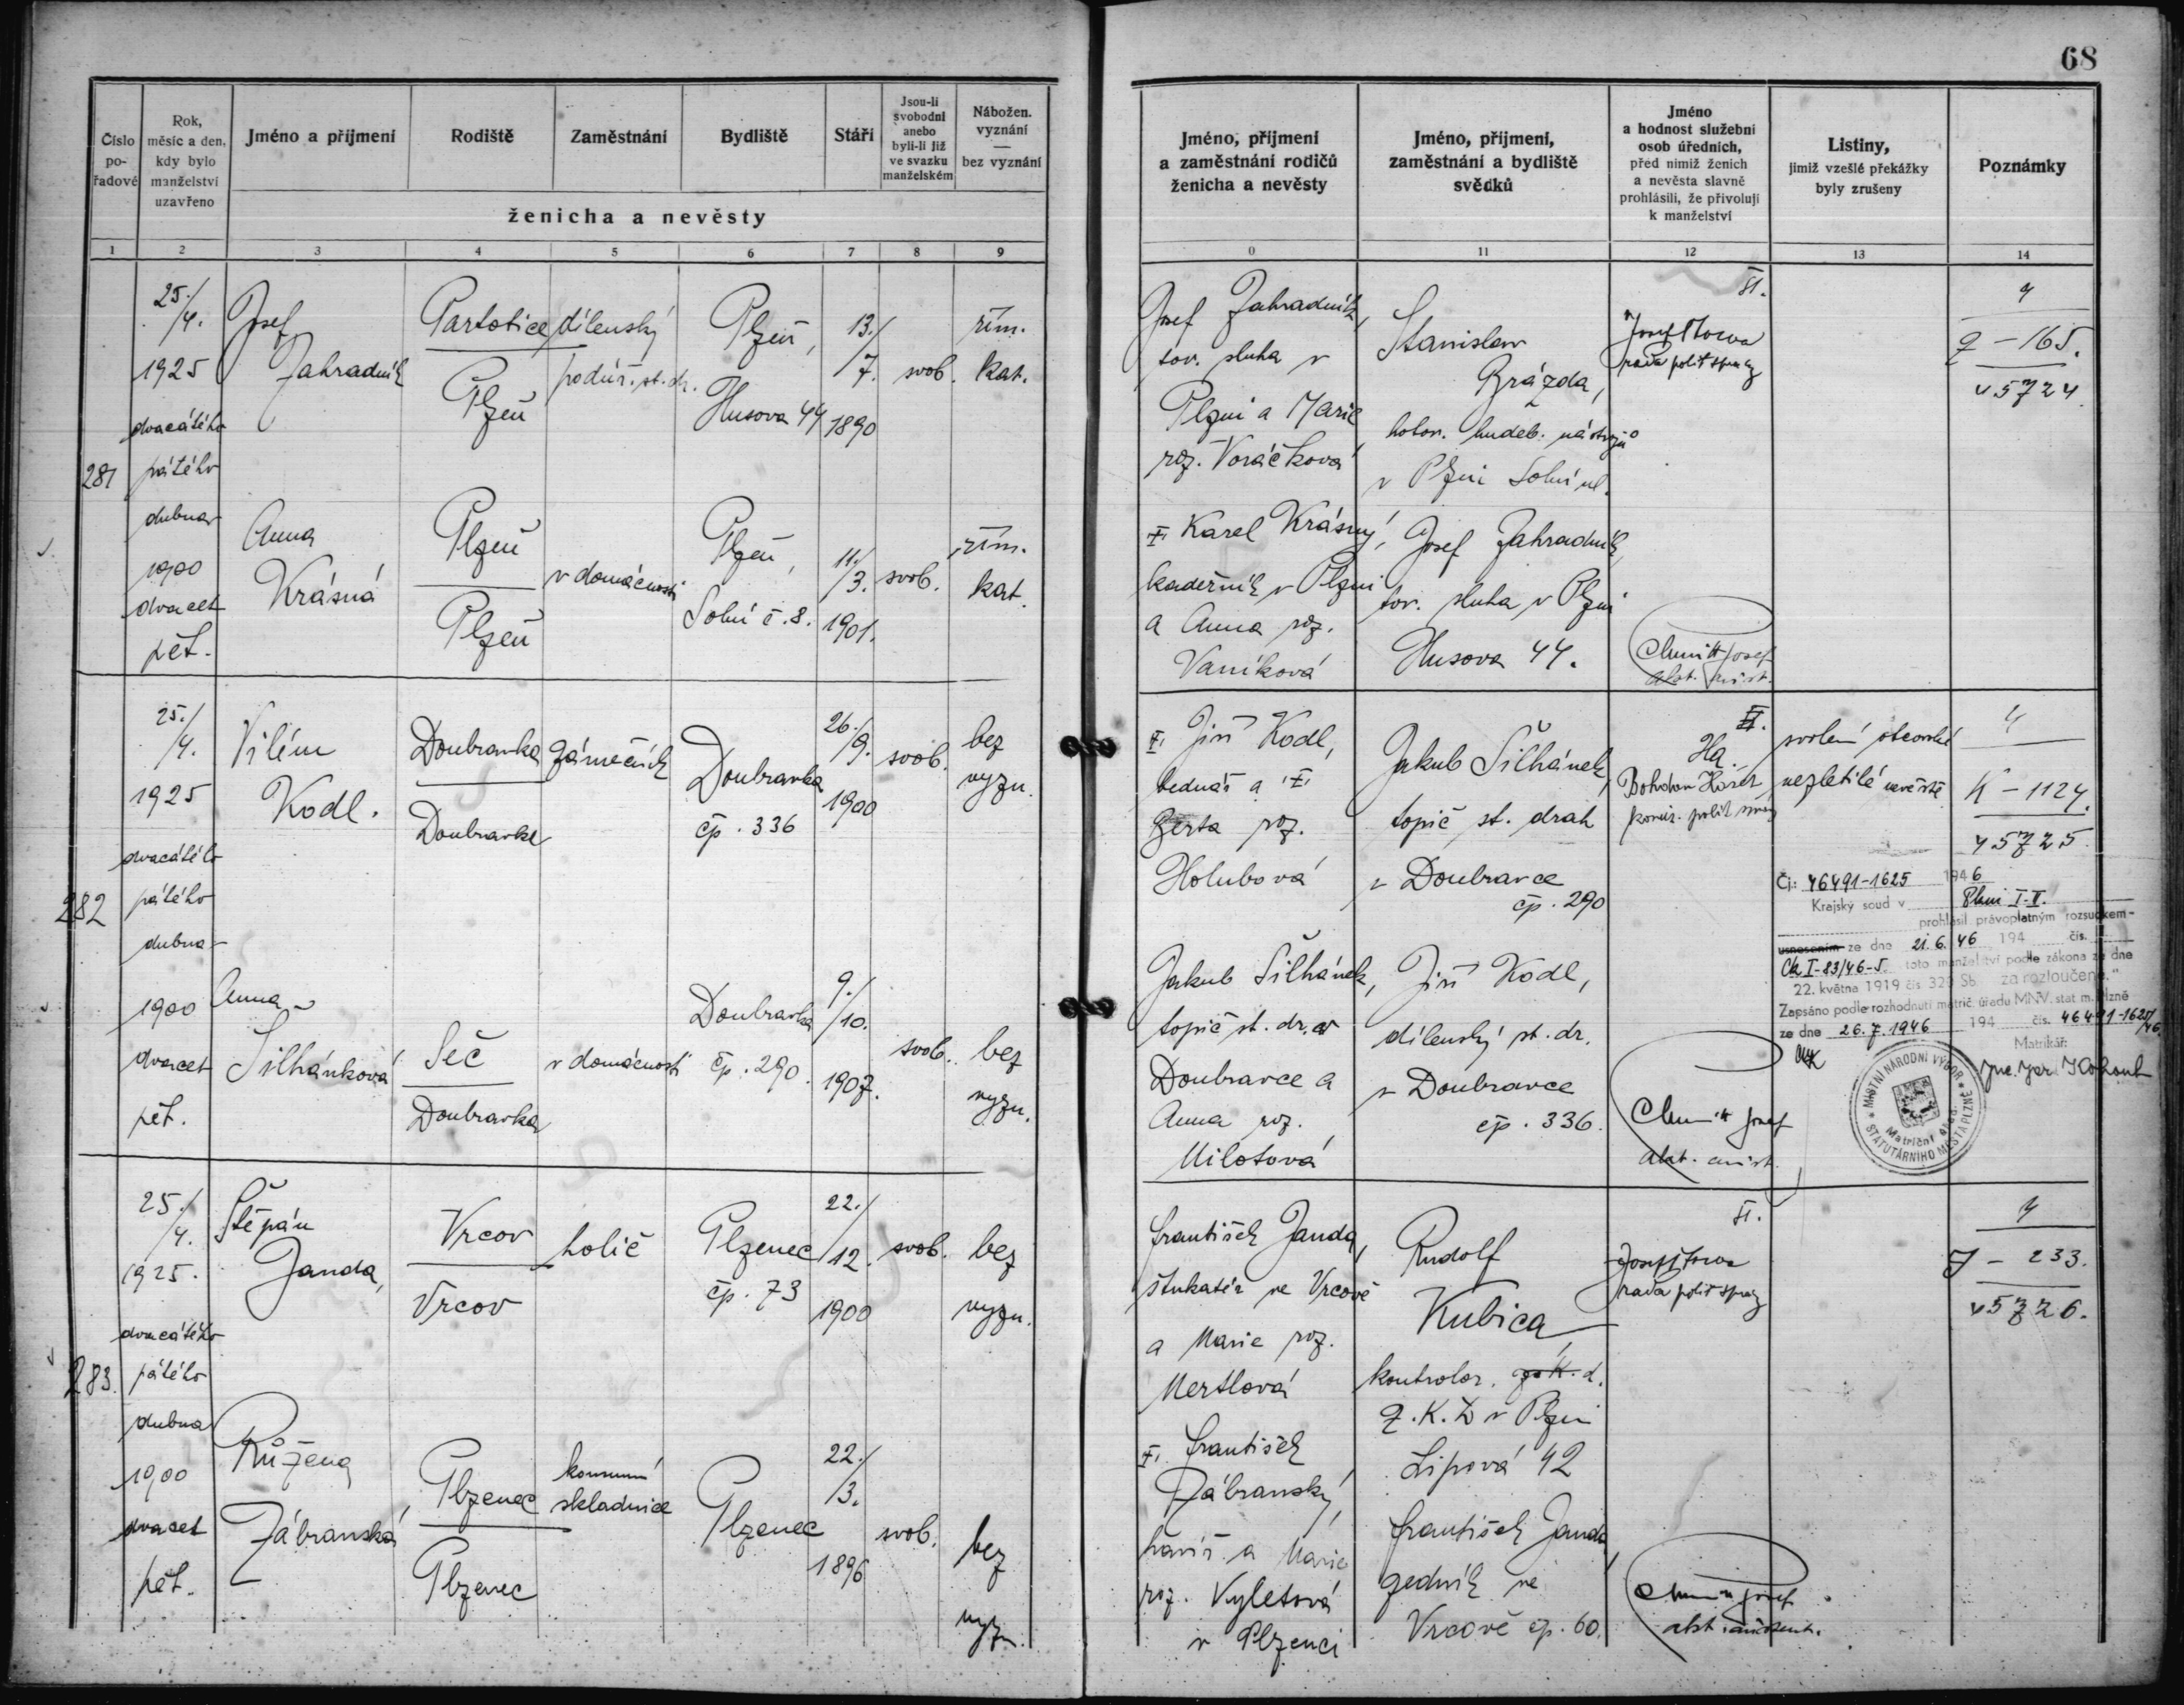 68
Číslo pořadové
Rok, měsíc a den, kdy bylo manželství uzavřeno
Jméno a příjmení
Rodiště
Zaměstnání
Bydliště
Stáří
Jsou-li svobodni anebo byli-li již ve svazku manželském
Nábožen. vyznání — bez vyznání
ženicha a nevěsty
Jméno, příjmení a zaměstnání rodičů ženicha a nevěsty
Jméno, příjmení, zaměstnání a bydliště svědků
Jméno a hodnost služební osob úředních, před nimiž ženich a nevěsta slavně prohlásili, že přivolují k manželství
Listiny, jimiž vzešlé překážky byly zrušeny
Poznámky
1 2 3 4 5 6 7 8 9
0 11 12 13 14
281
25./4.
1925
dvacátého
pátého
dubna
1900
dvacet
pět.
Josef
Zahradník
Partotice
Plzeň
dílenský
podúř. st. dr.
Plzeň,
Husova 44
13./
7.
1890
svob.
řím.
kat.
Anna
Krásná
Plzeň
Plzeň
v domácnosti
Plzeň,
Solní č. 8.
11./
3.
1901.
svob.
řím.
kat.
Josef Zahradník,
tov. sluha v
Plzni a Marie
roz. Voráčková
Karel Krásný,
kadeřník v Plzni
a Anna roz.
Vaníková
Stanislav
Brázda,
hotov. hudeb. nástrojů
v Plzni Solní ul.
Josef Zahradník,
tov. sluha v Plzni
Husova 44.
rada polit správy
Josef
4
Z – 165.
45724
282
25./4.
1925
dvacátého
pátého
dubna
1900
dvacet
pět.
Vilém
Kodl.
Doubravka
Doubravka
zámečník
Doubravka
čp. 336
26./
9.
1900
svob.
bez
vyzn.
Anna
Šilhánková
Seč
Doubravka
v domácnosti
Doubravka
čp. 290.
9./
10.
1907.
svob.
bez
vyzn.
Jiří Kodl,
bednář a
Berta roz.
Holubová
Jakub Šilhánek,
topič st. dr. v
Doubravce a
Anna roz.
Milotová
Jakub Šilhánek,
topič st. drah
v Doubravce
čp. 290
Jiří Kodl,
dílenský st. dr.
v Doubravce
čp. 336.
Josef
svolení otcovské
nezletilé nevěstě
4
K – 1124.
45725.
Čj: 46491-1625 1946
Krajský soud v Plzni
prohlásil právoplatným rozsudkem-
usnesením ze dne 21. 6. 46 194 čís.
Ck I-83/46-5. toto manželství podle zákona ze dne
22. května 1919 čís 320 Sb. za rozloučené."
Zapsáno podle rozhodnutí matrič. úřadu MNV. stat m. Plzně
ze dne 26. 7. 1946 194 čís. 46491-1625/46.
Matrikář:
MÍSTNÍ NÁRODNÍ VÝBOR
STATUTÁRNÍHO MĚSTA PLZNĚ
Matriční
283.
25./4.
1925.
dvacátého
pátého
dubna
1900
dvacet
pět.
Štěpán
Janda,
Vrcov
Vrcov
holič
Plzenec
čp. 73
22./
12.
1900
svob.
bez
vyzn.
Růžena
Zábranská,
Plzenec
Plzenec
konsumní
skladnice
Plzenec
22./
3.
1896
svob.
bez
vyzn.
František Janda,
štukatér ve Vrcově
a Marie roz.
Mertlová
František
Zábranský,
havíř a Marie
roz. Vyletová
v Plzenci
Rudolf
Kubica,
kontrolor.
Z. K. D v Plzni
Lipová 42
František Janda,
zedník ve
Vrcově čp. 60.
rada polit správy
Josef
4
J – 233.
45726.